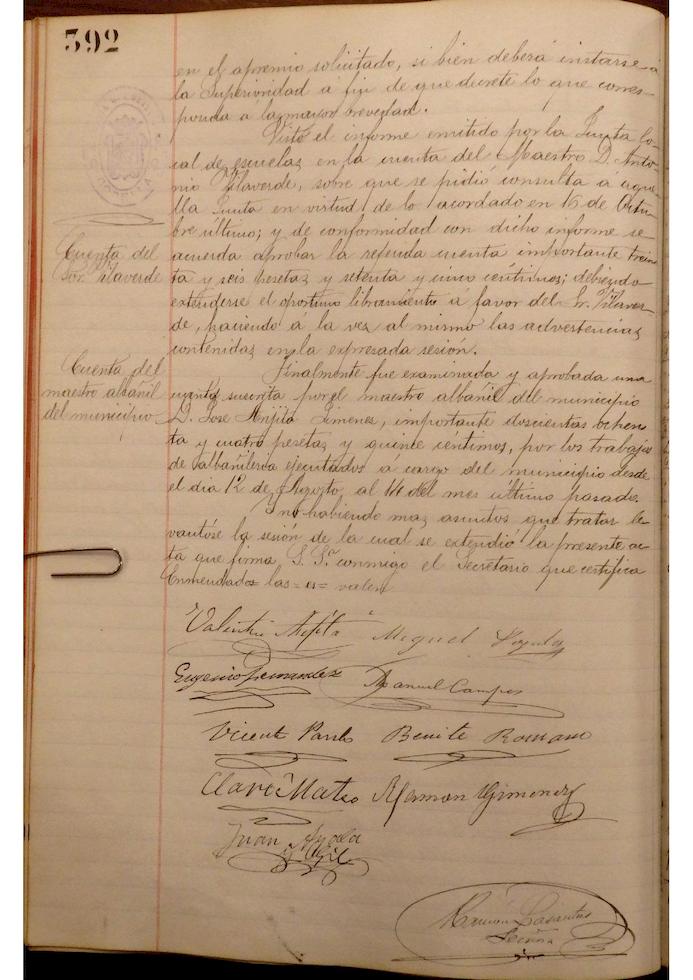 392
en el apremio solicitado, si bien deberá instarse á
la Superioridad á fin de que decrete lo que corres-
ponda á la mayor brevedad.
Visto el informe emitido por la Junta lo-
cal de escuelas en la cuenta del Maestro D. Anto-
nio Vilaverde, sobre que se pidió consulta a aque-
lla Junta en virtud de lo acordado en 16 de Octu-
bre último; y de conformidad con dicho informe se
Cuenta del
Sor. Vilaverde
acuerda aprobar la referida cuenta importante trein-
ta y seis pesetas y setenta y cinco céntimos; debiendo
extenderse el oportuno libramiento a favor del Sr. Vilaver-
de, haciendo á la vez al mismo las advertencias
contenidas en la expresada sesión.
Cuenta del
maestro albañil
del municipio
Finalmente fue examinada y aprobada una
cuenta suscrita por el maestro albañil del municipio
D. Jose Jimenez, importante doscientas ochen-
ta y cuatro pesetas y quince centimos, por los trabajos
de albañileria ejecutados á cargo del municipio desde
el dia 12 de Agosto al 14 del mes último pasado.
Y no habiendo mas asuntos que tratar le-
vantóse la sesión de la cual se extendió la presente ac-
ta que firma S. Sª. conmigo el Secretario que certifica
Enmendados = las = = valen
Valentin Miguel
Eugenio Fernandez Manuel Campos
Vicente Pardo Benito Romano
Clavé Mateo Roman Gimenez
Juan Ayala
y Gil
Ramón Lasantas